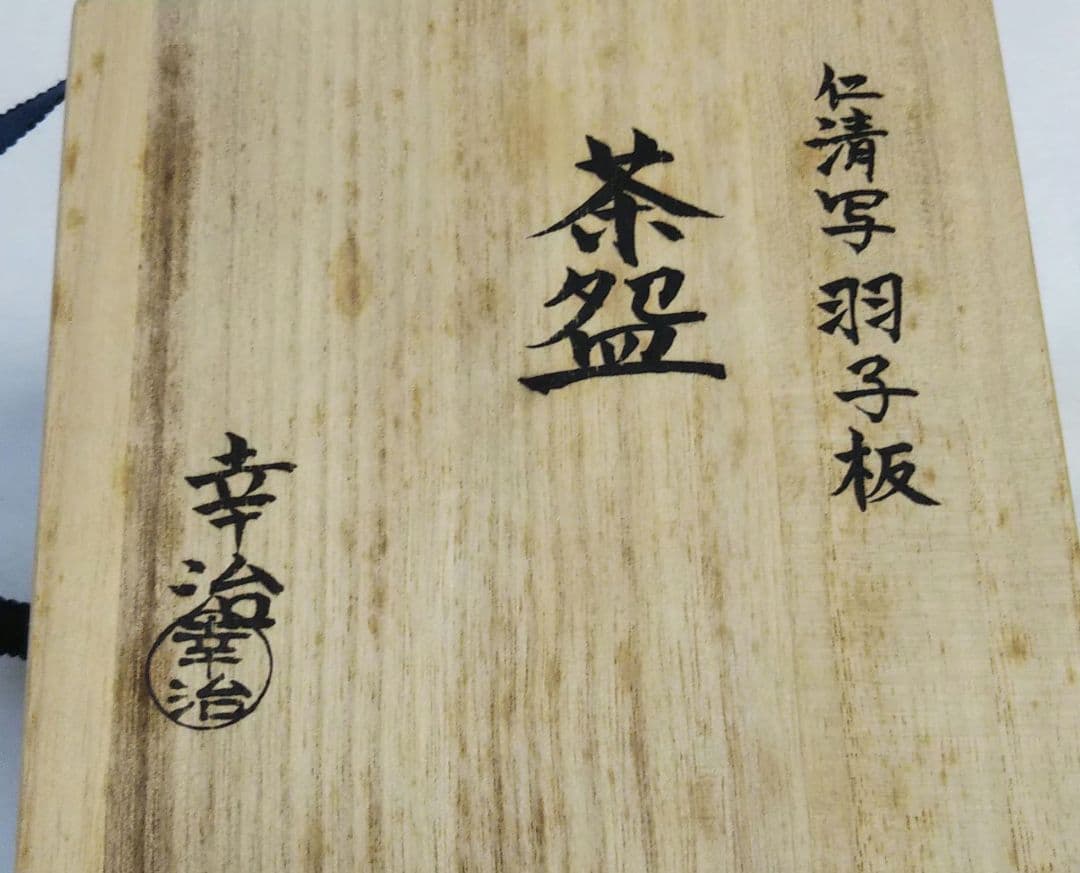 仁清写 羽子板
茶盌
幸治
幸治